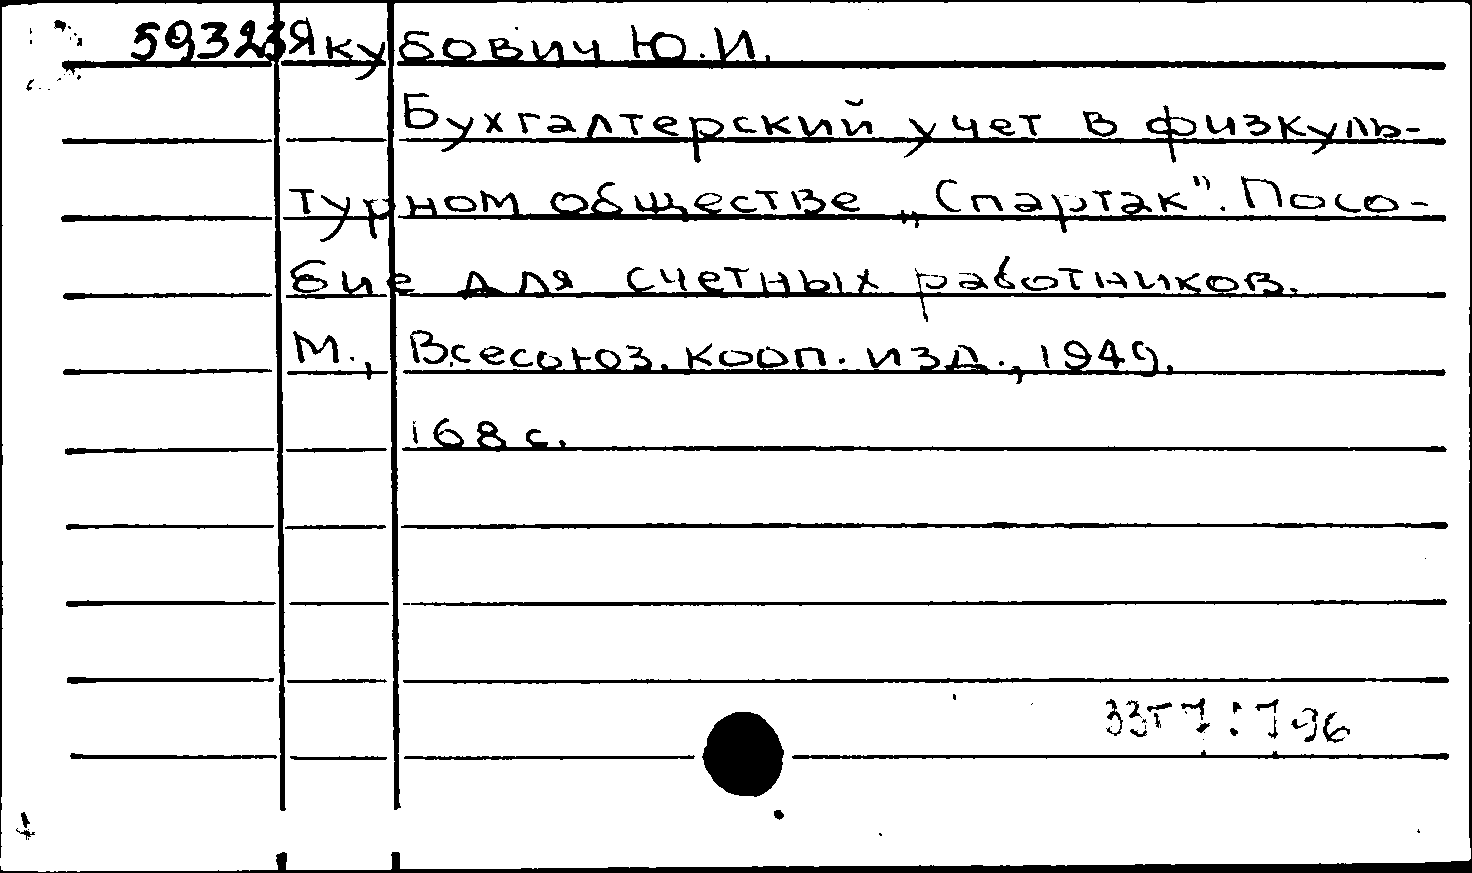 59323 Якубович Ю.И.
Бухгалтерский учет в физкуль-
турном обществе „Спартак". Посо-
бие для счетных работников.
М., Всесоюз. кооп. изд., 1949.
168 с.
33Т7:796